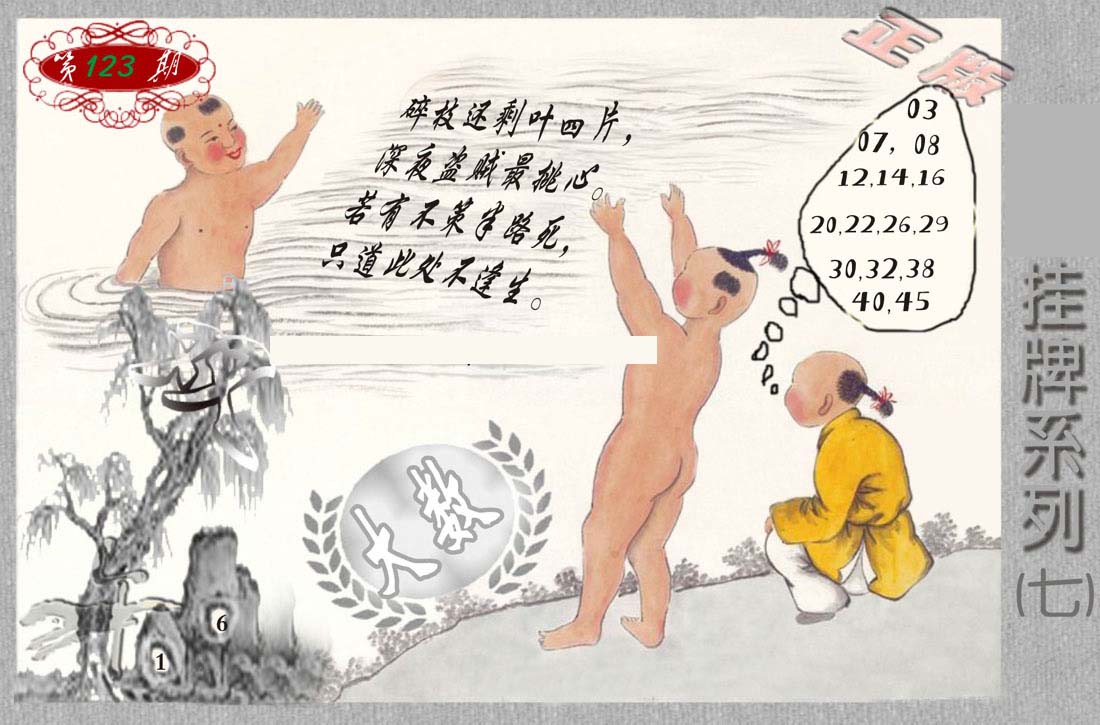 第123期
正版
碎枝还剩叶四片，
深夜盗贼最挑心。
若有不策半路死，
只道此处不逢生。
03
07，08
12,14,16
20,22,26,29
30,32,38
40,45
挂牌系列(七)
大数
6
1